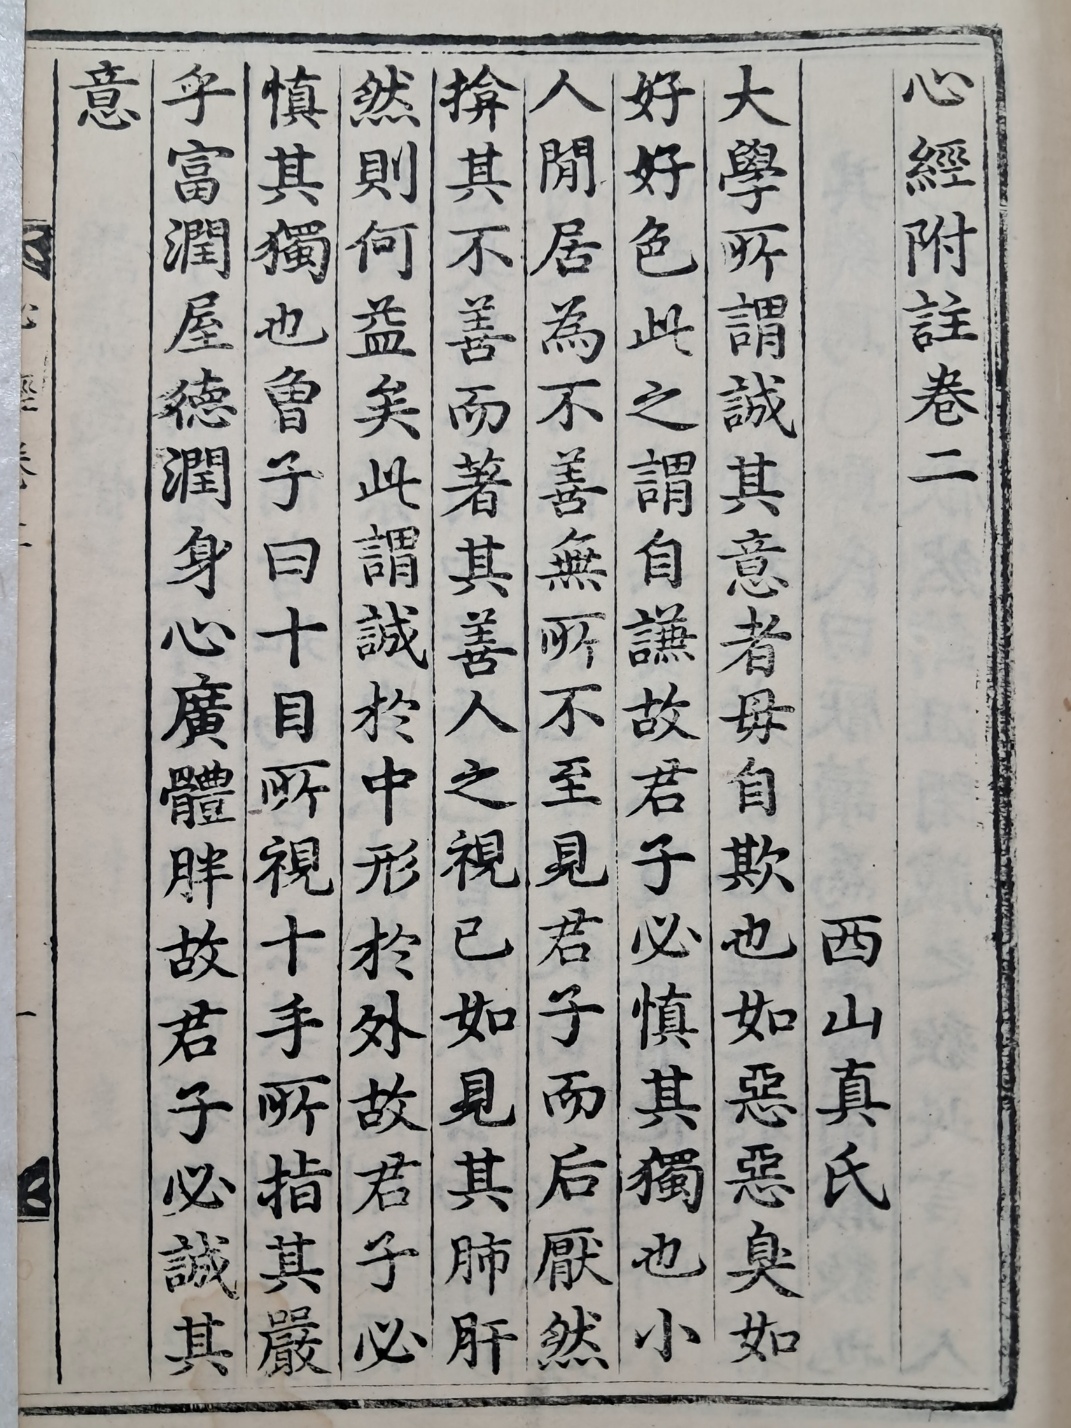 心經附註卷二
西山真氏
大學所謂誠其意者毋自欺也如惡惡臭如
好好色此之謂自謙故君子必慎其獨也小
人閒居為不善無所不至見君子而后厭然
揜其不善而著其善人之視已如見其肺肝
然則何益矣此謂誠於中形於外故君子必
慎其獨也曾子曰十目所視十手所指其嚴
乎富潤屋德潤身心廣體胖故君子必誠其
意